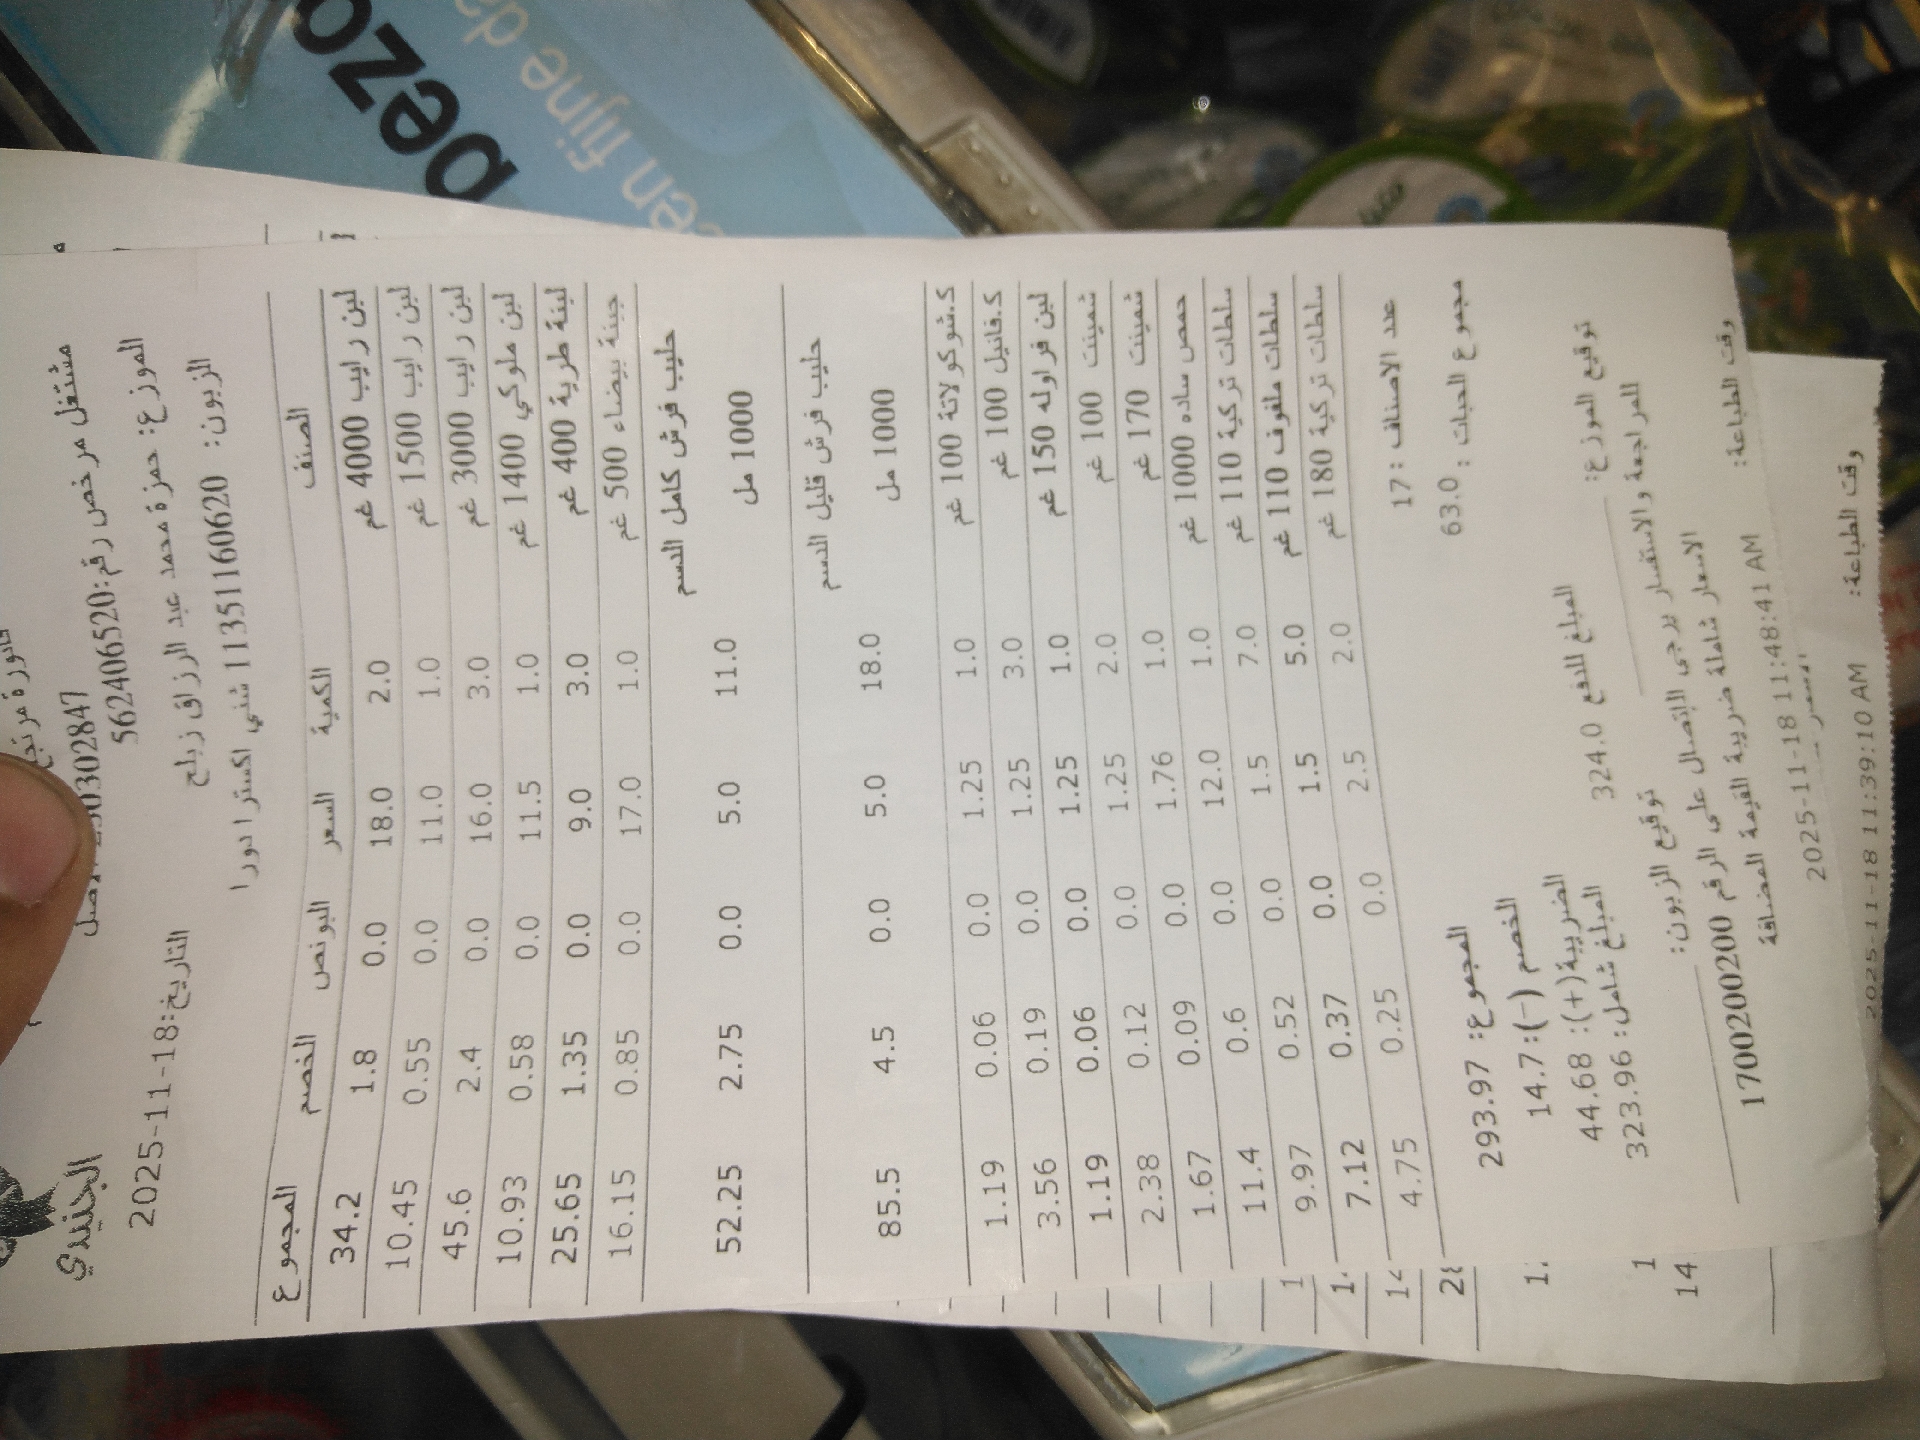 الجنيدي
مشتغل مرخص رقم:562406520
التاريخ:2025-11-18
الموزع: حمزة محمد عبد الرزاق زبلح
الزبون: 11351160620 شني اكسترا دورا
الصنف الكمية السعر البونص الخصم المجموع
لبن رايب 4000 غم 2.0 18.0 0.0 1.8 34.2
لبن رايب 1500 غم 1.0 11.0 0.0 0.55 10.45
لبن رايب 3000 غم 3.0 16.0 0.0 2.4 45.6
لبن ملوكي 1400 غم 1.0 11.5 0.0 0.58 10.93
لبنة طرية 400 غم 3.0 9.0 0.0 1.35 25.65
جبنة بيضاء 500 غم 1.0 17.0 0.0 0.85 16.15
حليب فرش كامل الدسم
1000 مل 11.0 5.0 0.0 2.75 52.25
حليب فرش قليل الدسم
1000 مل 18.0 5.0 0.0 4.5 85.5
ك.شوكولاتة 100 غم 1.0 1.25 0.0 0.06 1.19
ك.فانيل 100 غم 3.0 1.25 0.0 0.19 3.56
لبن فراوله 150 غم 1.0 1.25 0.0 0.06 1.19
شمينت 100 غم 2.0 1.25 0.0 0.12 2.38
شمينت 170 غم 1.0 1.76 0.0 0.09 1.67
حمص ساده 1000 غم 1.0 12.0 0.0 0.6 11.4
سلطات تركية 110 غم 7.0 1.5 0.0 0.52 9.97
سلطات ملفوف 110 غم 5.0 1.5 0.0 0.37 7.12
سلطات تركية 180 غم 2.0 2.5 0.0 0.25 4.75
عدد الاصناف :17
المجموع: 293.97
مجموع الحبات : 63.0
الخصم (-):14.7
الضريبة(+): 44.68
المبلغ للدفع 324.0 المبلغ شامل: 323.96
توقيع الموزع: توقيع الزبون:
للمراجعة والاستفسار يرجى الاتصال على الرقم 1700200200
الاسعار شاملة ضريبة القيمة المضافة
وقت الطباعة: 2025-11-18 11:48:41 AM
2025-11-18
وقت الطباعة: 2025-11-18 11:39:10 AM
bezo
een fijne da